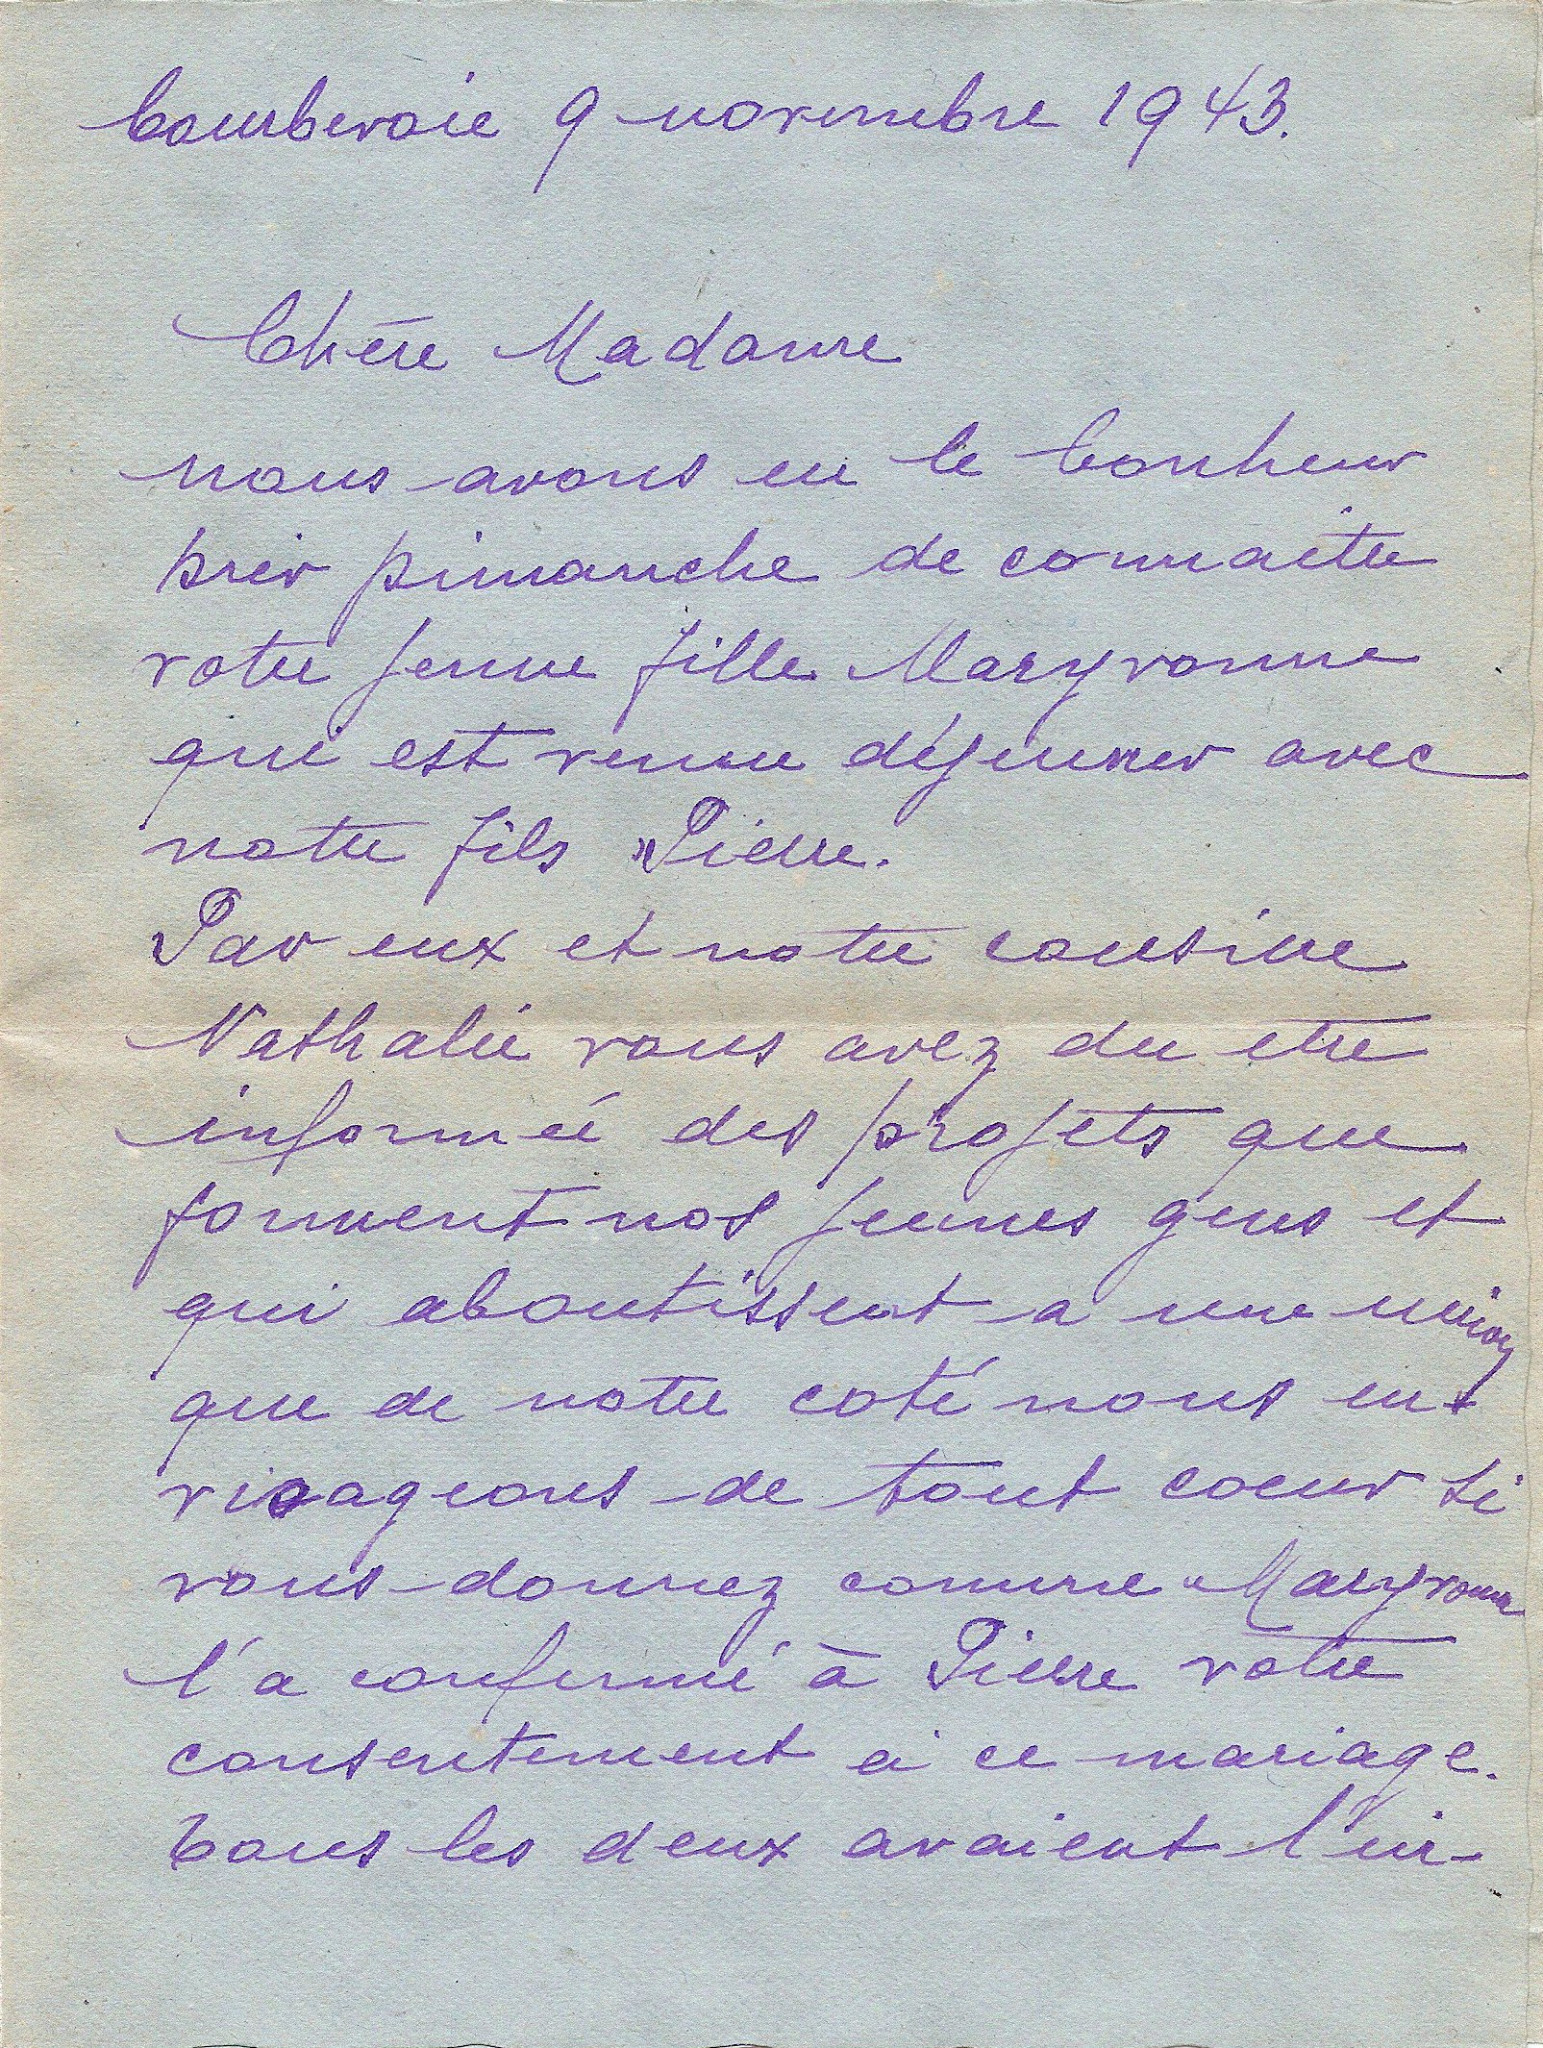 Courbevoie 9 novembre 1943.
Chère Madame
nous avons eu le bonheur
hier Dimanche de connaitre
votre jeune fille Maryvonne
qui est venue déjeuner avec
notre fils Pierre.
Par eux et notre cousine
Nathalie vous avez du etre
informée des projets que
forment nos jeunes gens et
qui aboutissent a une union
que de notre coté nous en-
visageons de tout coeur si
vous donnez comme Maryvonne
l'a confirmé à Pierre votre
consentement à ce mariage.
Tous les deux avaient l'in-